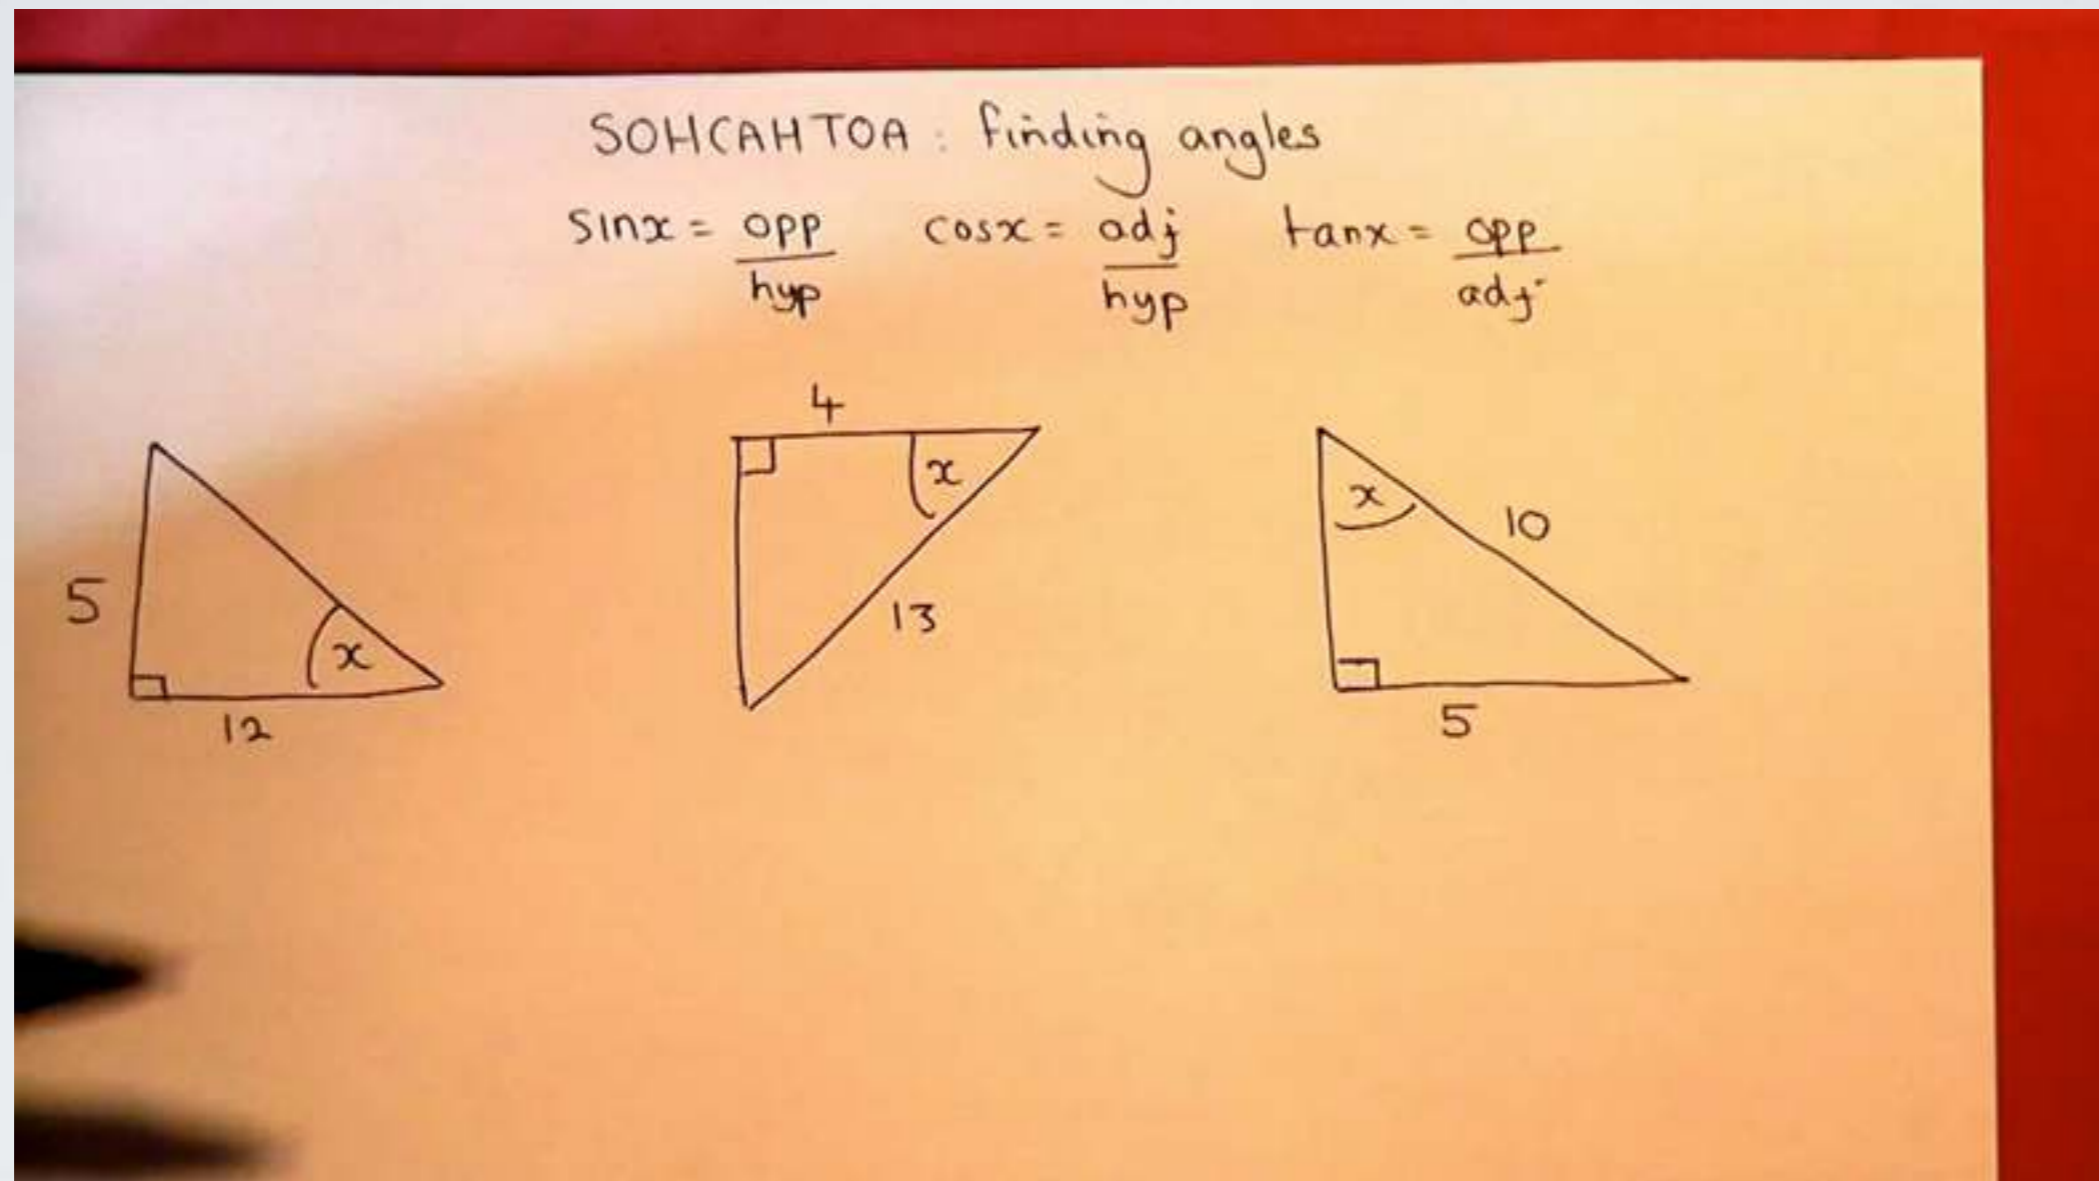 SOHCAHTOA: finding angles
sinx = opp/hyp cosx = adj/hyp tanx = opp/adj
4
x
x
10
5
13
x
12
5